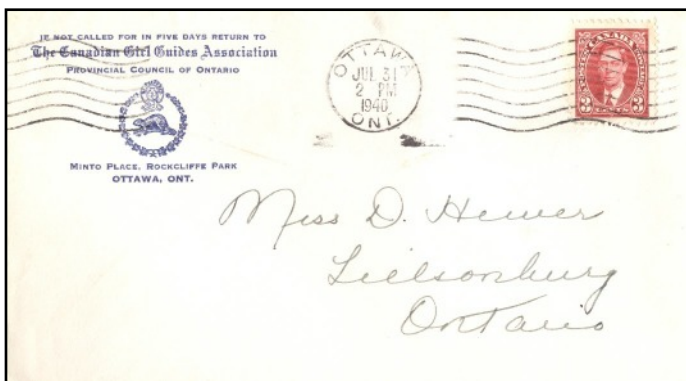 IF NOT CALLED FOR IN FIVE DAYS RETURN TO
The Canadian Girl Guides Association
PROVINCIAL COUNCIL OF ONTARIO
MINTO PLACE, ROCKCLIFFE PARK
OTTAWA, ONT.
OTTAWA
JUL 31
2 PM
1940
ONT.
CANADA
3 3
Miss D. Hewer
Tillsonburg
Ontario